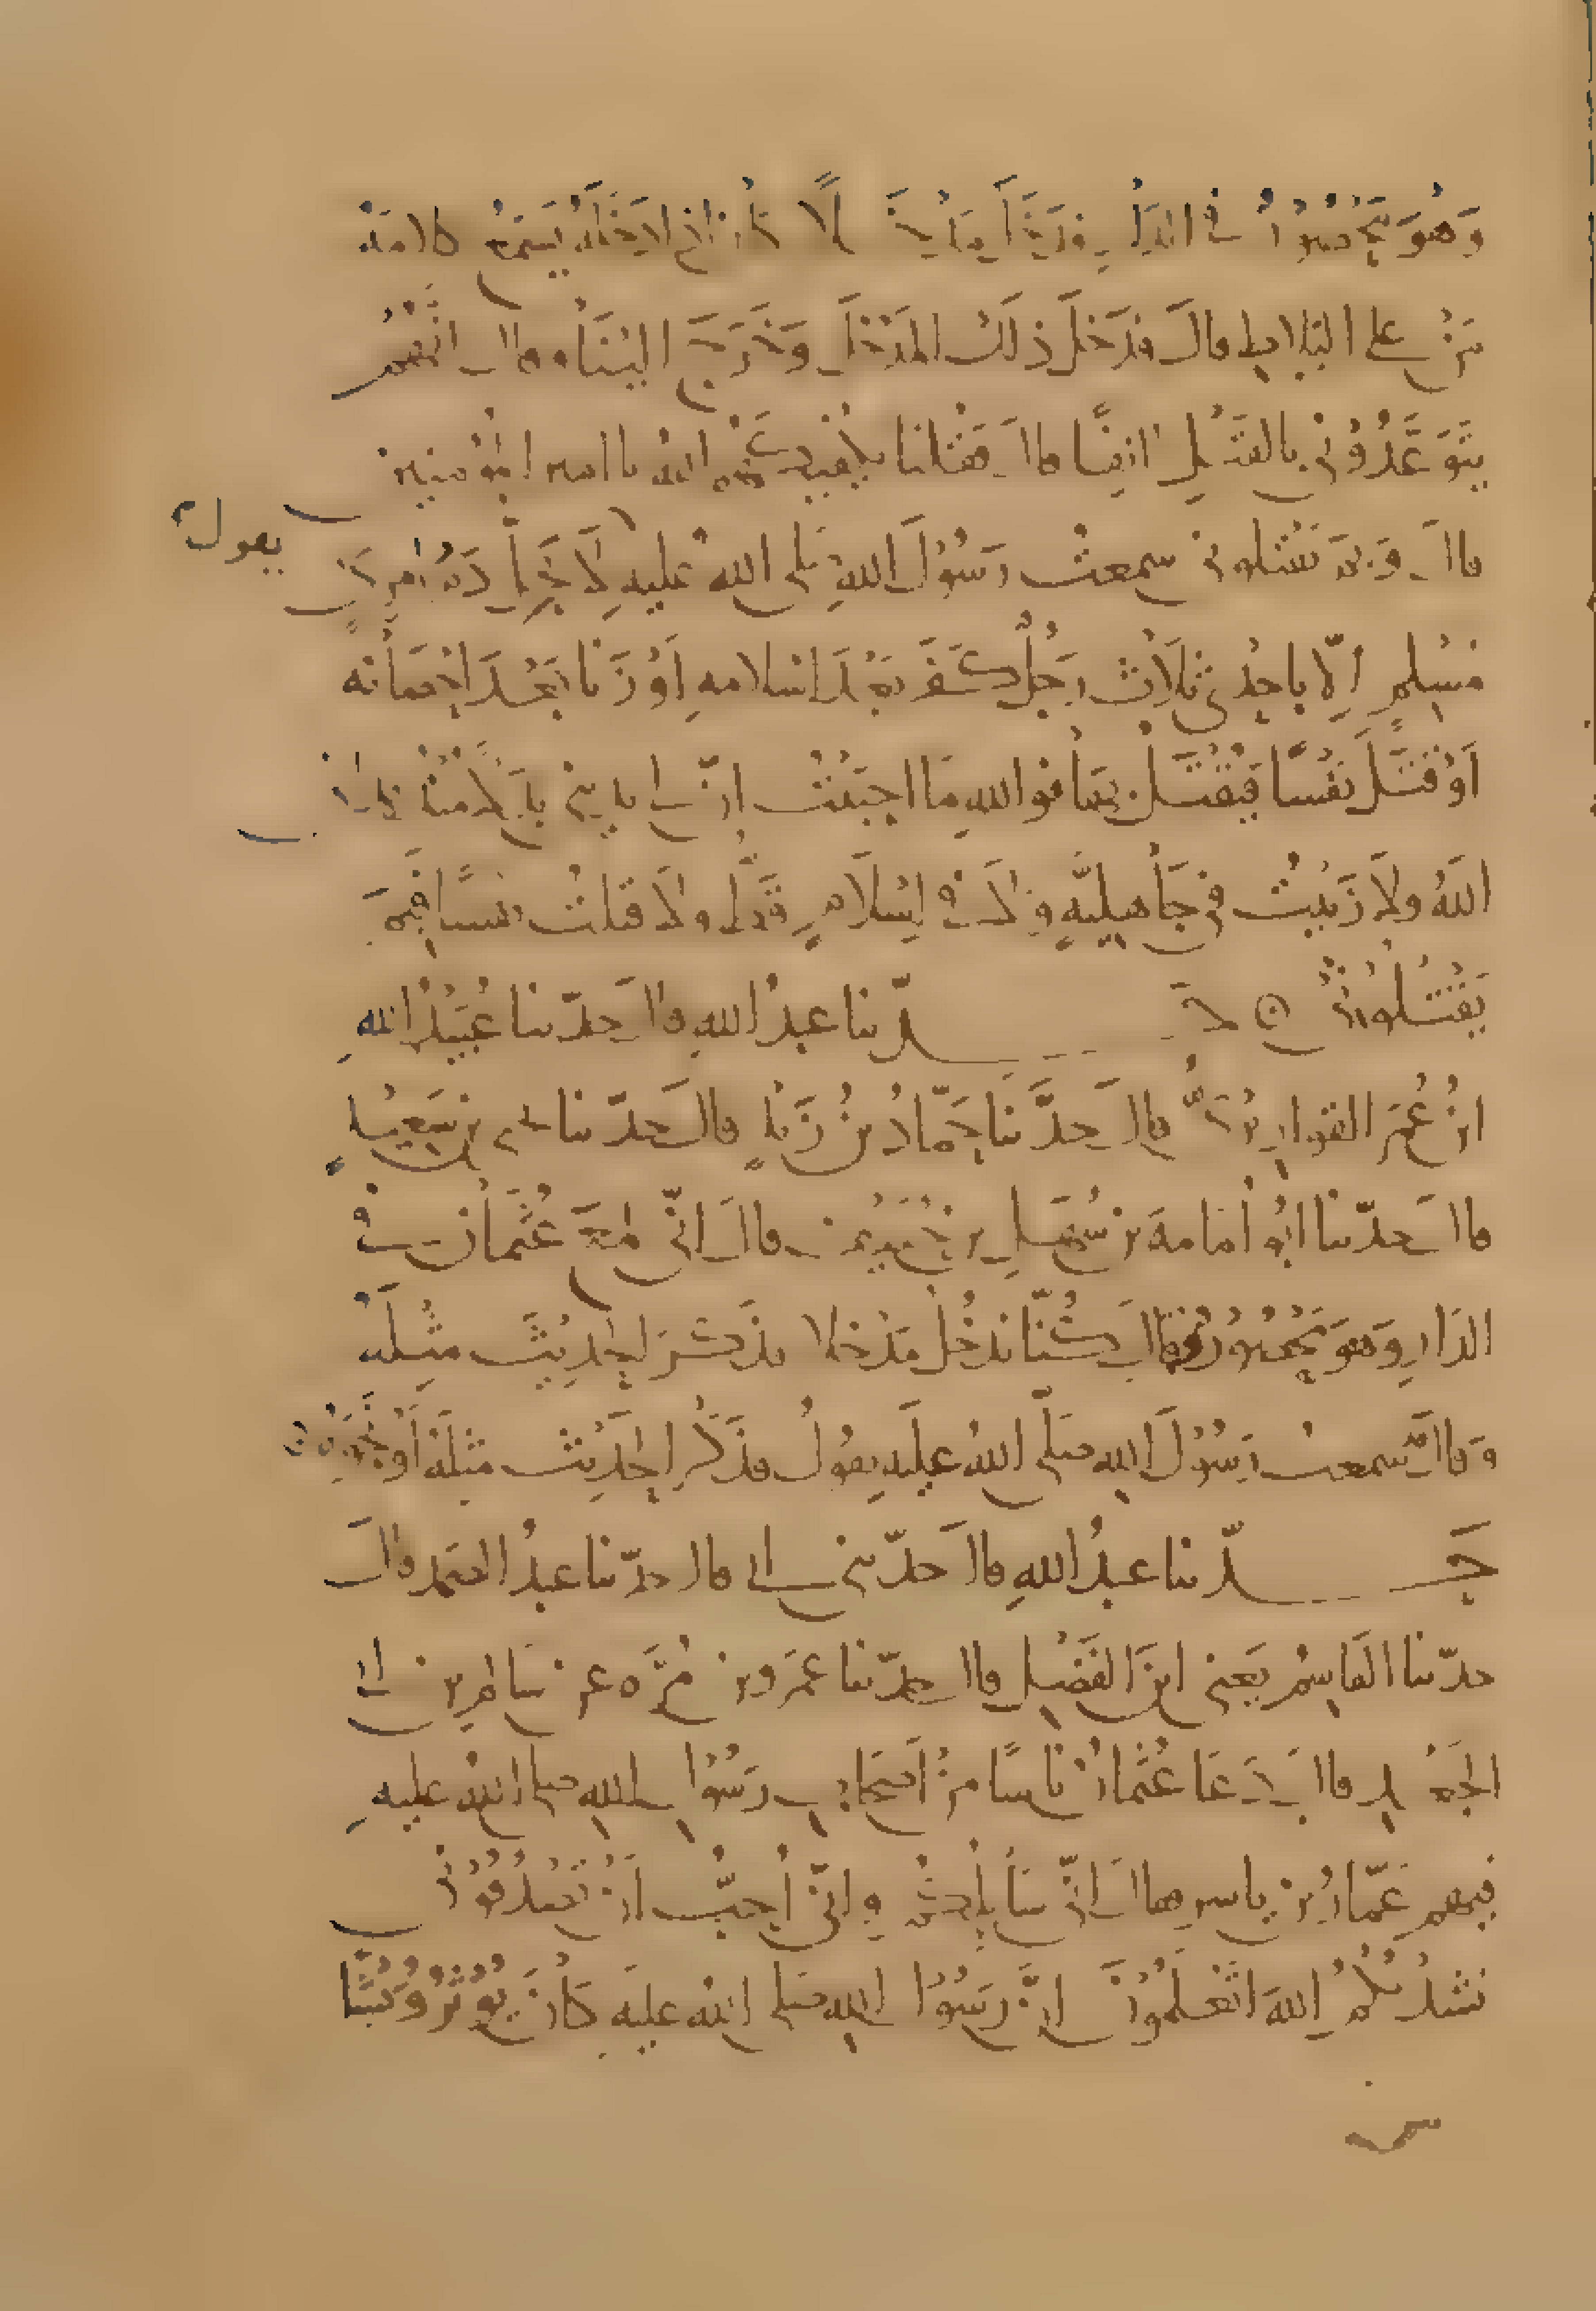 وَهُوَ مَحْصُورٌ في الدار فدَخَلَ مَدْخَلًا كَانَ اذا دَخَلَهُ يَسْمَعُ كلامَهُ
مَنْ على البَلاطِ قالَ فدَخَلَ ذلكَ المَدْخَلَ وَخَرَجَ اليْنَا وقال انَّهُمْ
يَتَوَعَّدُوْنِي بالقَتْلِ انِفًا قالَ قُلْنا يَكْفِيكَهُمُ اللهُ يا امير المُؤْمنين
قالَ وَبِمَ تَقْتُلُونِي سمعتُ رَسُوْلَ اللهِ صَلى اللهُ عليهِ يقول لَا يَحِلُّ دَمُ امْرِئٍ
مُسْلِمٍ اِلّا باِحْدى ثَلَاثٍ رَجُلٌ كَفَرَ بَعْدَ اسْلامِهِ اَوْ زَنَا بَعْدَ احْصَانِه
اَوْ قَتَلَ نَفْسًا فَيُقْتَل بهَا فوَ اللهِ مَا احْبَبْتُ انَّ لي بدِيْنِي بَدَلًا مُنْذُ هَدَانِي
اللهُ وَلَا زَنَيْتُ في جَاهِلِيَّةٍ وَلَا في اِسْلَامٍ قَطُّ وَلَا قتلتُ نفْسًا فبِمَ
يَقْتُلُونِي ⊙ حَدّثنا عبدُ اللهِ قالَ حدّثنا عُبَيْدُ اللهِ
ابْنُ عُمَرَ القَوارِيْرِيُّ قالَ حدَّثَنَا حَمّادُ بْنُ زَيْدٍ قالَ حدّثنا يحيى بن سَعِيْدٍ
قالَ حدّثنا ابُو اُمَامَةَ بن سُهَيْلِ بن حُنَيْف قالَ انّي لمَعَ عُثْمَانَ في
الدَارِ وَهوَ مَحْصُورٌ وقالَ كُنَّا نَدْخُلُ مَدْخَلا فذَكَرَ الحَدِيْثَ مِثْلَهُ
وَقالَ سمعتُ رَسُوْلَ اللهِ صَلّى اللهُ عليهِ يقولُ فذَكَر الحَدِيْثَ مِثْلَهُ أَوْ نَحْوَهُ ⊙
حَدّثنا عبدُ اللهِ قالَ حدّثني ابي قال حدّثنا عبدُ الصَمَدِ قالَ
حدّثنا القَاسِمُ يَعني ابنَ الفَضْلِ قالَ حدّثنا عَمَرو بن مُرَّه عن سَالمِ بن ابي
الجَعْدِ قالَ دَعَا عُثْمَانُ نَاسًا مِنْ اَصْحَابِ رَسُوْلِ اللهِ صلى اللهُ عليهِ
فيهم عَمّارُ بن يَاسِرٍ فقالَ انِّي سَائِلُكُمْ وَانِّي اُحِبُّ اَنْ تَصْدُقُوْنِي
نَشَدْتُكُمُ اللهَ اَتَعْلَمُوْنَ انَّ رَسُوْلَ اللهِ صَلى اللهُ عليهِ كَانَ يُوْثِرُ قُرَيْشًا